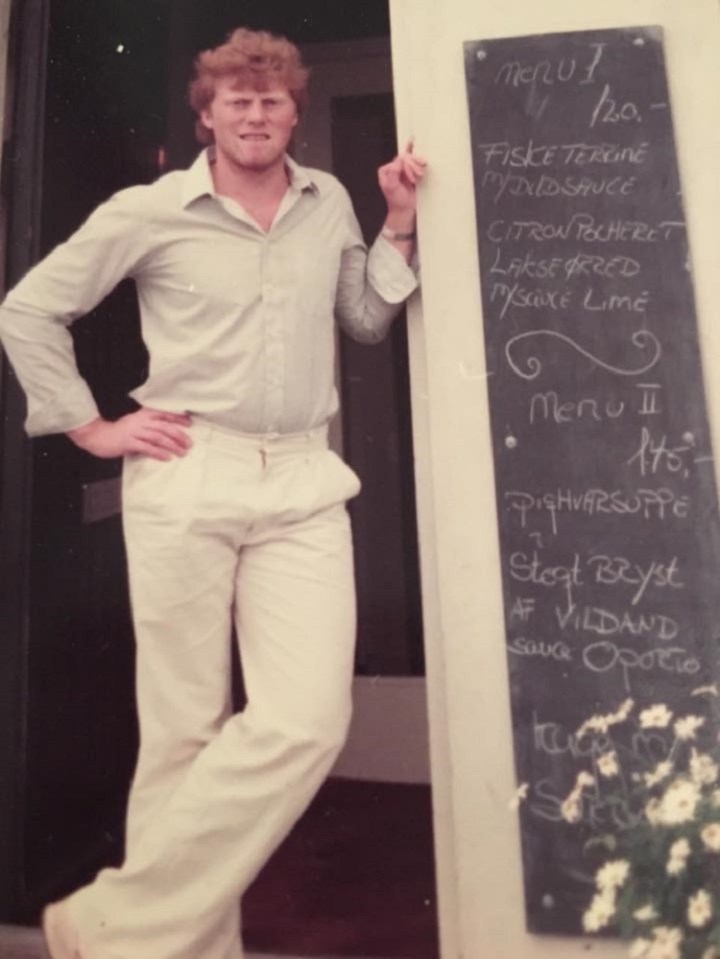 Menu I
120.-
FISKETERRINE
M/DILDSAUCE
CITRONPOCHERET
LAKSEØRRED
M/SAUCE LIME
Menu II
145,-
PIGHVARSUPPE
Stegt BRYST
AF VILDAND
sauce Oporto